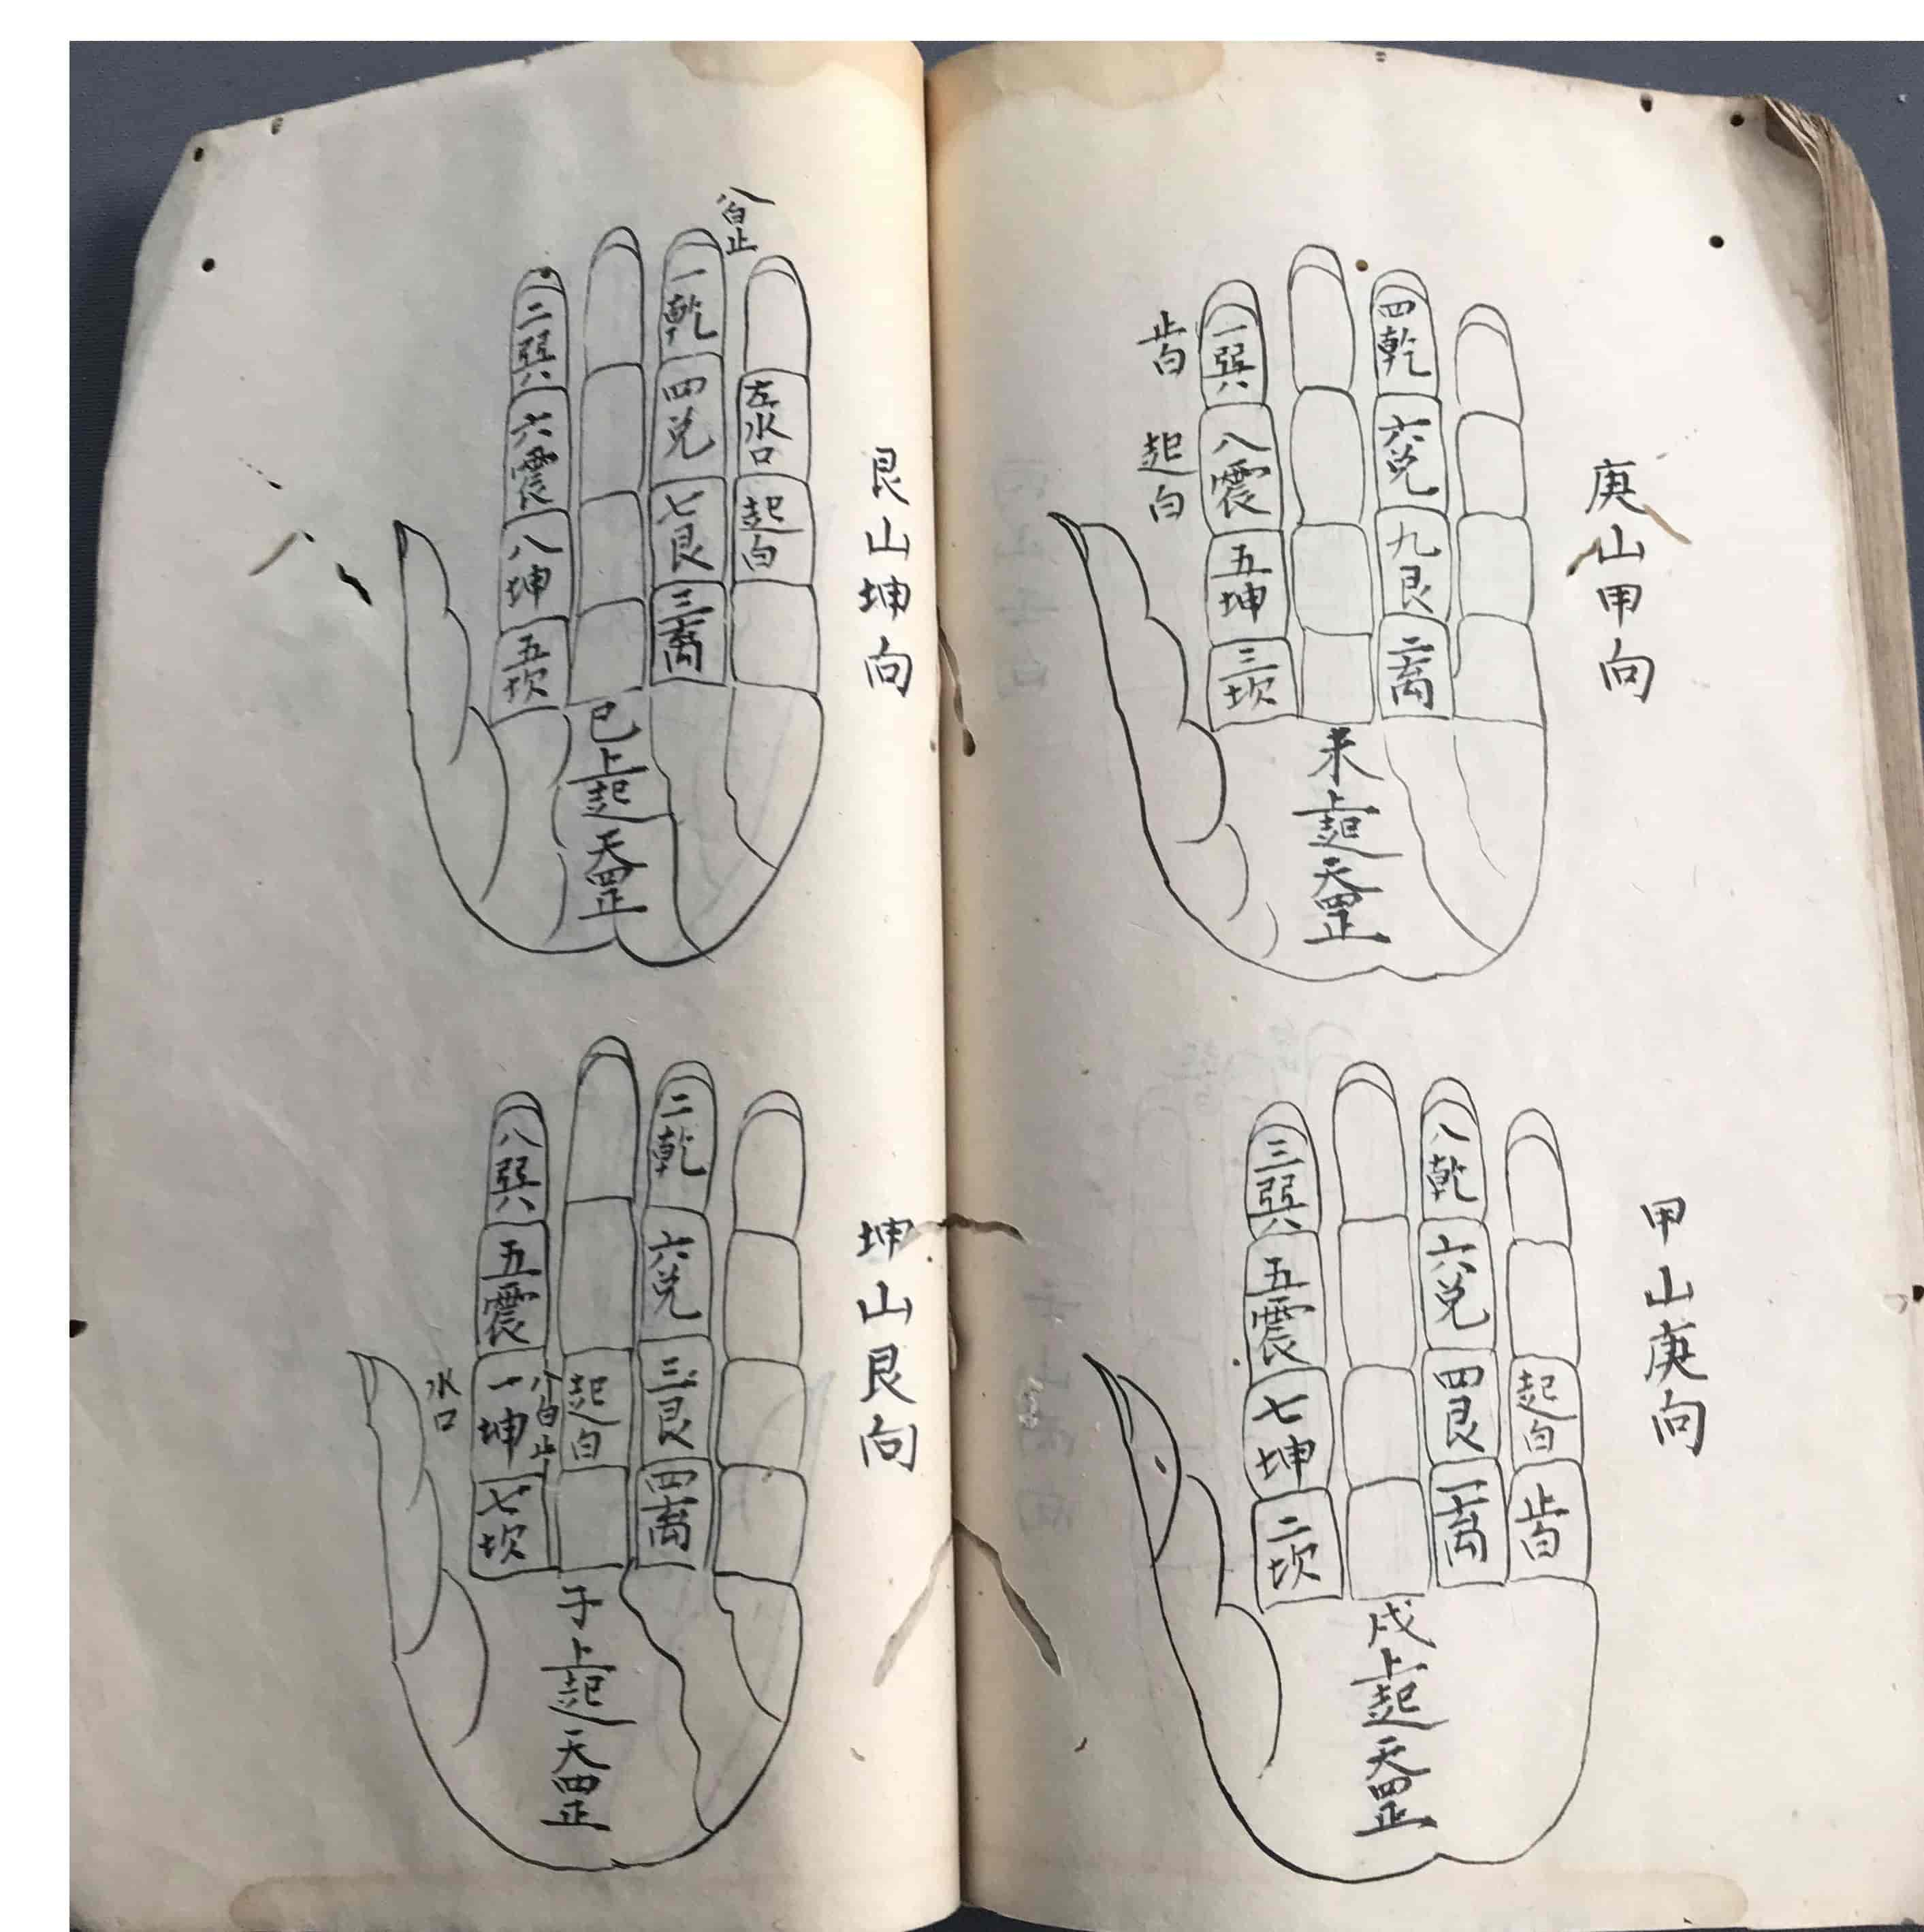 庚山甲向
四乾
六兌
九艮
二離
一巽
八震
五坤
三坎
止白
起白
未上起天罡
甲山庚向
八乾
六兌
四艮
一離
起白
止白
三巽
五震
七坤
二坎
戌上起天罡
艮山坤向
八白止
左水口
起白
一乾
四兌
七艮
三離
二巽
六震
八坤
五坎
巳上起天罡
坤山艮向
二乾
六兌
三艮
四離
起白
八白止
八巽
五震
一坤
七坎
水口
子上起天罡